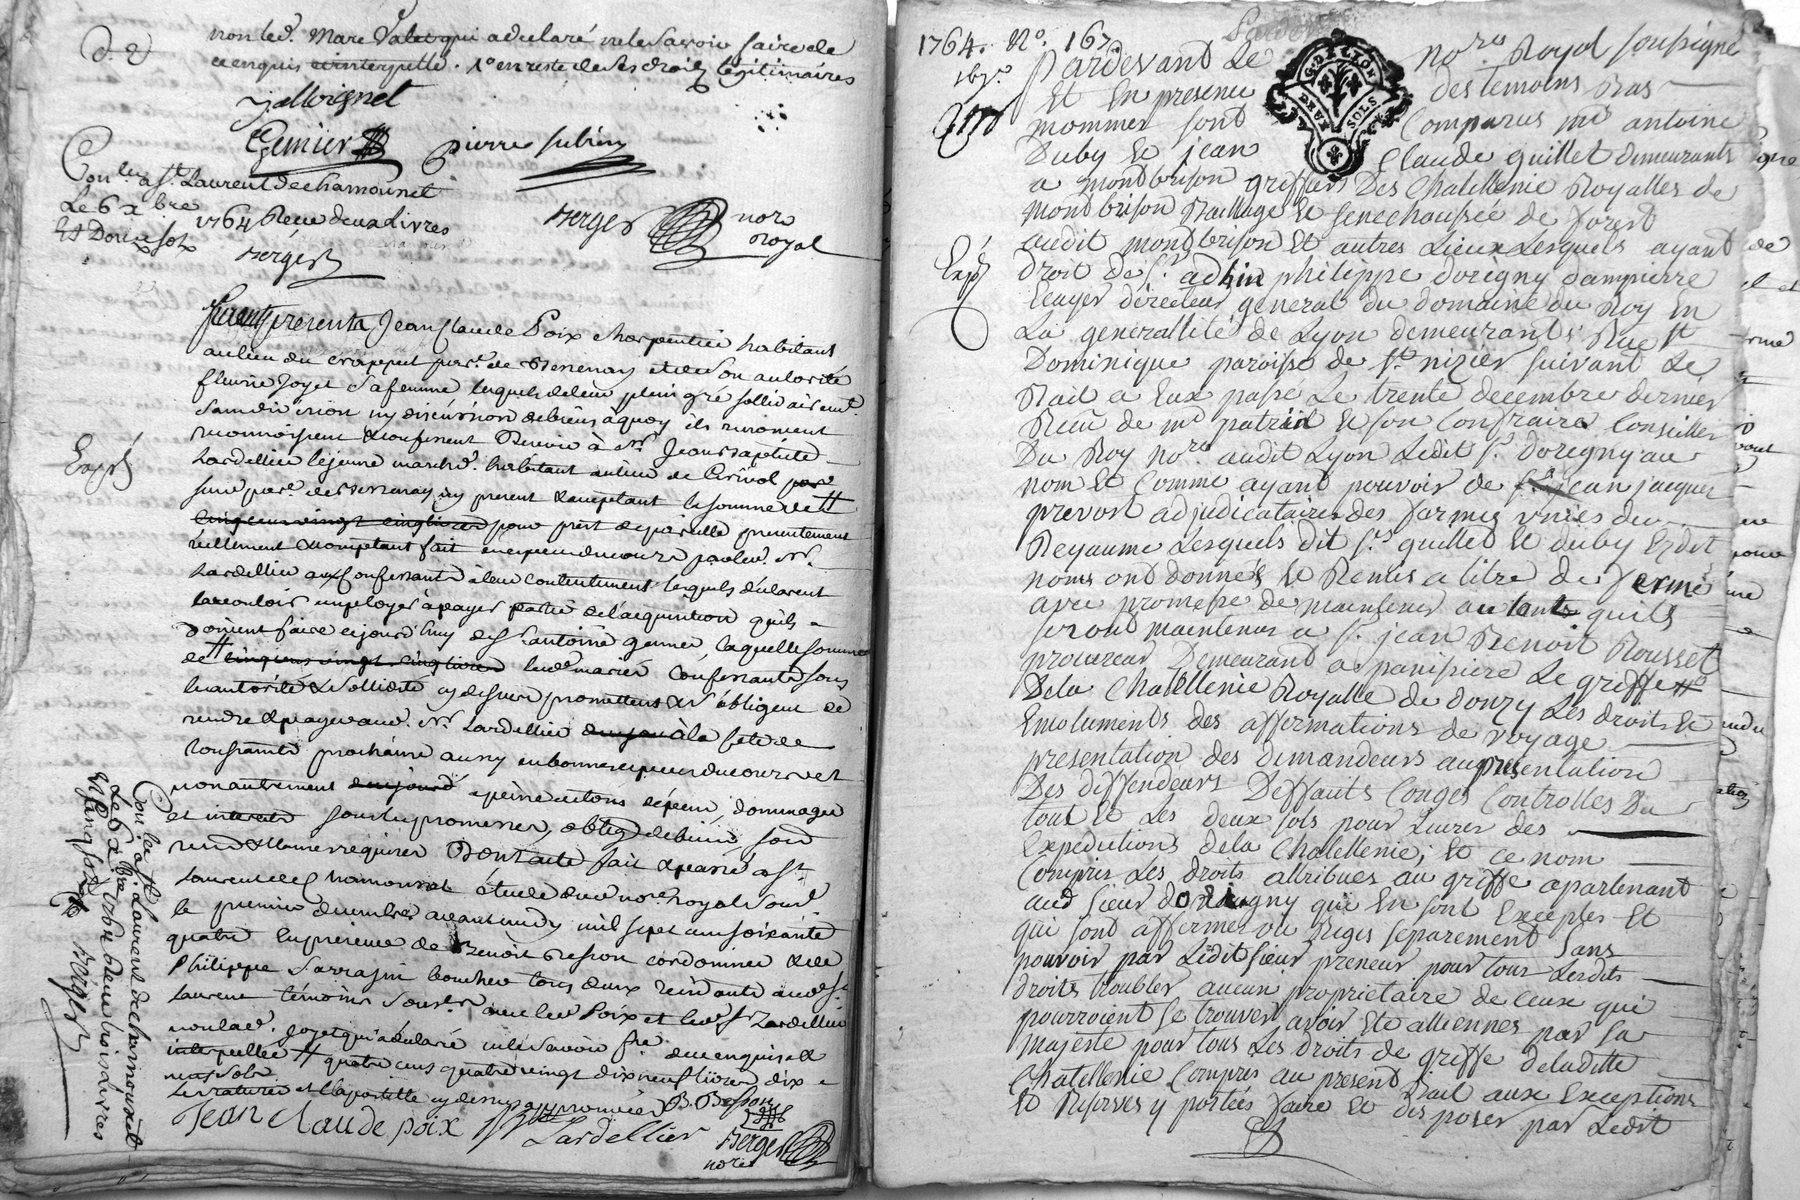 non led. Marc Valet qui a declaré ne le savoir faire de
ce enquis et interpellé. 1° en reste de ses droits légitimaires
Gemier pierre
Conlé a St. Laurent de chamousset
Le 6 xbre
1764 Reçu deux Livres
Et Douze sols
Berger
Berger nore
Royal
Furent presents Jean Claude Poix charpentier habitant
au lieu du crappet parse. de Bessenay et de son autorité
fleurie Joyet sa femme lesquels de leur plein gré sollidairemt.
sans division ny discussion de biens à quoy ils renoncent
reconnoissent & confessent devoir à sr. Jean Baptiste
Lardellier le jeune marchd. habitant au lieu de
susd parse. de Bessenay icy present & acceptant la somme de #
cinq cens vingt cinq livres pour prêt de pareille presentement
réellement & comptant fait en especes du cours par led. sr.
Lardellier aux confessants à leur contentement lesquels déclarent
la vouloir employer à payer partie de l'acquisition qu'ils
doivent faire cejourd'huy de sr antoine gamier, laquelle somme
de # cinq cens vingt cinq livres lesd. mariés confessants sous
lautorité & sollidité cy dessus promettent & s'obligent de
rendre & payer aud. sr. Lardellier à la fete de
Toussaints prochaine aussy en bonnes especes du cours et
non autrement à peine de tous dépens, dommages
et interets sous les promesses, oblig. de biens, soud
rend & clauses requises Dont acte fait & passé a St.
Laurent de Chamousset étude du nore. royal sousd.
le premier decembre avant midy mil sept cens soixante
quatre En présence de Benoit Besson cordonnier & de
Philippe Sarrasin boucher tous deux residants aud. St.
Laurent témoins soussrs. avec led. Poix et led. sr. Lardellier
non lad. Joyet qui a déclaré ne le savoir fre. de ce enquise &
interpellée # quatre cens quatre vingt dix neuf livres dix
neuf sols
Les ratures et l'apostille cy dessus approuvées B. Besson
Jean Claude poix Lardellier
Berger
nore
Expé
Conlé a St. Laurent de chamousset
Le 6 xbre 1764 Reçu trois Livres
Et cinq sols
Berger
1764. No. 167
167e.
Pardevant Le nore Royal soussigné
Et En presence des temoins Bas
nommés sont Comparus mr antoine
Duby Et jean Claude guillet demeurants
a montbrison griffiers Des Chatellenie Royalles de
montbrison Baillage Et senechaussée de forest
audit montbrison Et autres Lieux Lesquels ayant
Expé
droit de sr. adrien philippe dorigny damguerre
Ecuyer directeur general du domaine du Roy En
La generallité de Lyon demeurants Rue St
Dominique paroisse de St. nizier suivant Le
Bail a Eux passé Le trente decembre dernier
Reçu de mr patrin Et son Confraire Conseillers
Du Roy nores audit Lyon Ledit sr. dorigny au
nom Et Comme ayant pouvoir de sr. jean jacques
prevost adjudicataire des fermes unies du
Royaume Lesquels dit srs. guillet Et duby Esdit
noms ont donnés Et Remis a titre de ferme
avec promesse de maintenir au tant quils
seront maintenus a sr. jean Benoit Rousset
procureur Demeurant a panissiere Le griffe
Dela Chatellenie Royalle de donzy Les droits Et
Emoluments des affirmations de voyage
presentation des demandeurs presentation
Des deffendeurs Deffauts Conges Controlles Du
tout Et Les deux sols pour Livres des
Expeditions dela Chatellenie; Et ce nom
Compris Les droits attribues au griffe apartenant
aud sieur dorigny qui En sont Exceptés Et
qui sont affermé ou Regis separement sans
pouvoir par Ledit sieur preneur pour tous Lesdits
droits troubler aucun proprietaire de Ceux qui
pourroient se trouver avoir Eté alliennes par sa
majesté pour tous Les droits de griffe deladitte
Chatellenie Compris au present Bail aux Exceptions
Et Reserves y portées faire Et disposer par Ledit